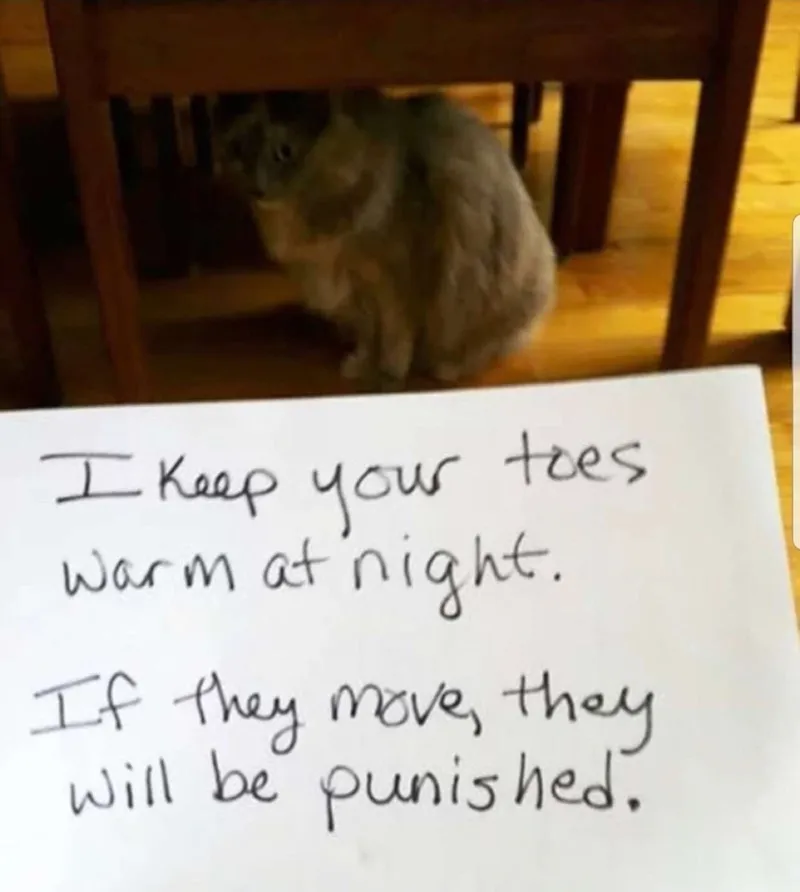 I keep your toes
warm at night.
If they move, they
will be punished.